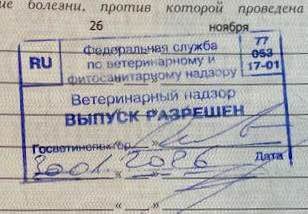 ие болезни, против которой проведена
26 ноября
RU
Федеральная служба
по ветеринарному и
фитосанитарному надзору
77
053
17-01
Ветеринарный надзор
ВЫПУСК РАЗРЕШЕН
Госветинспектор
2026
Дата
« »
« »